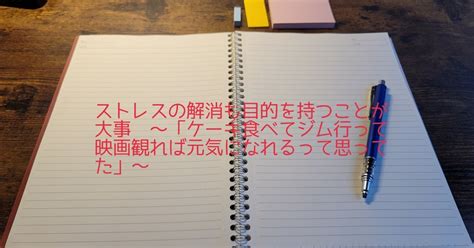 ストレスの解消も目的を持つことが
大事　～「ケーキ食べてジム行って
映画観れば元気になれるって思って
た」～